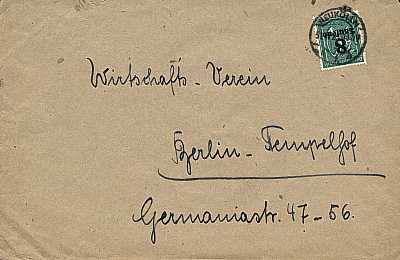 Wirtschafts-Verein
Berlin-Tempelhof
Germaniastr. 47-56.
8